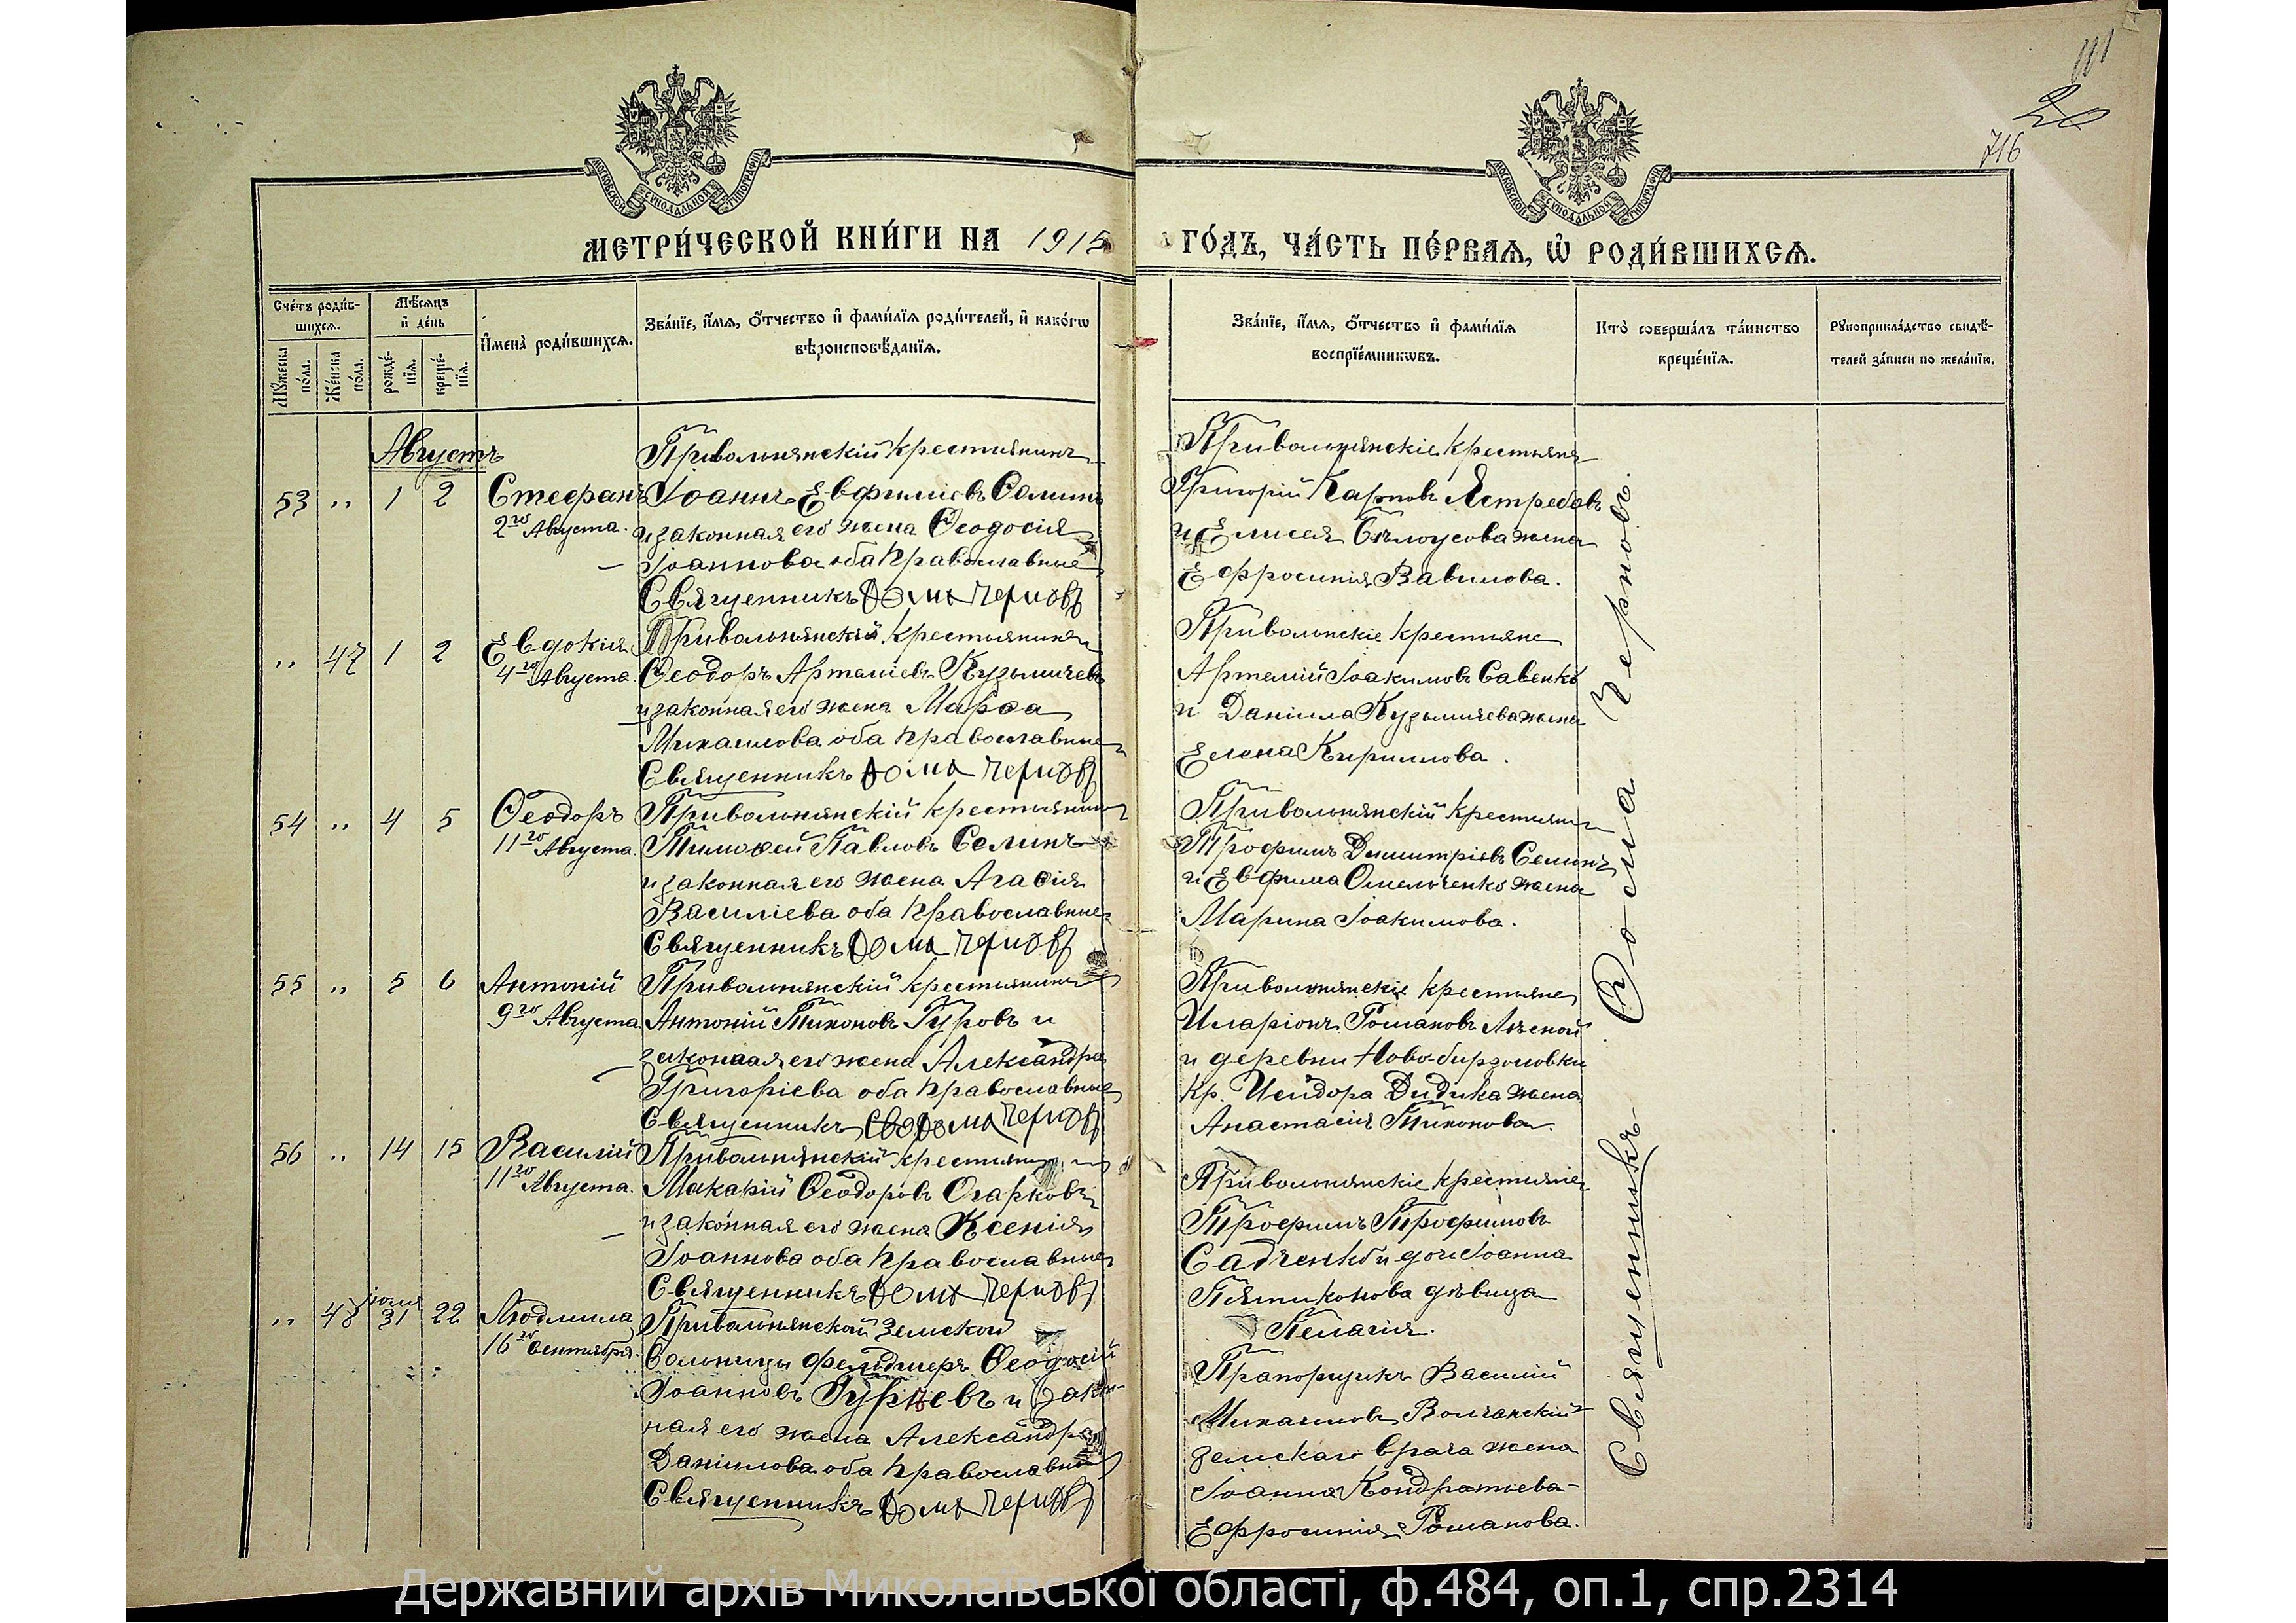 111
20
716
МОСКОВСКОЙ СѴНОДАЛЬНОЙ ТИПОГРАФІИ
МОСКОВСКОЙ СѴНОДАЛЬНОЙ ТИПОГРАФІИ
МЕТРИ́ЧЕСКОЙ КНИ́ГИ НА 1915 ГО́ДЪ, ЧА́СТЬ ПЕ́РВАѦ, Ѽ РОДИ́ВШИХСѦ.
Сче́тъ роди́вшихсѧ.
Мꙋ́жеска по́ла.
Же́нска по́ла.
Мѣ́сѧцъ и҆ де́нь
рожде́нїѧ.
креще́нїѧ.
И҆мена̀ роди́вшихсѧ.
Зва́нїе, и҆́мѧ, ѻ҆́тчество и҆ фами́лїѧ роди́телей, и҆ како́гѡ вѣроисповѣ́данїѧ.
Зва́нїе, и҆́мѧ, ѻ҆́тчество и҆ фами́лїѧ воспрїе́мникѡвъ.
Кто̀ соверша́лъ та́инство креще́нїѧ.
Рꙋкоприкла́дство свидѣ́телей за́писи по жела́нїю.
Августъ
53 " 1 2 Стефанъ
2го Августа.
Привольнянскій крестьянинъ
Іоаннъ Евфиміевъ Селинъ
и законная его жена Ѳеодосія
Іоаннова оба православные
Священникъ Ѳома Черновъ
Привольнянскіе крестьяне
Григорій Карповъ Ястребовъ
и Елисея Бѣлоусова жена
Ефросинія Вавилова.
" 47 1 2 Евдокія
4го Августа.
Привольнянскій крестьянинъ
Ѳеодоръ Артеміевъ Кузьмичевъ
и законная его жена Марѳа
Михаилова оба православные
Священникъ Ѳома Черновъ
Привольнскіе крестьяне
Артемій Іоакимовъ Савенко
и Даніила Кузьмичева жена
Елена Кириллова.
54 " 4 5 Ѳеодоръ
11го Августа.
Привольнянскій крестьянинъ
Тимоѳей Павловъ Селинъ
и законная его жена Агаѳія
Василіева оба православные
Священникъ Ѳома Черновъ
Привольнянскій крестьянинъ
Трофимъ Димитріевъ Селинъ
и Евфима Омельченко жена
Марина Іоакимова.
55 " 5 6 Антоній
9го Августа
Привольнянскій крестьянинъ
Антоній Тихоновъ Гуровъ и
законная его жена Александра
Григоріева оба православные
Священникъ Ѳома Черновъ
Привольнянскіе крестьяне
Иларіонъ Романовъ Лѣсной
и деревни Ново-бирзуловки
кр. Исидора Дидика жена
Анастасія Тихонова.
56 " 14 15 Василій
11го Августа.
Привольнянскій крестьянинъ
Макарій Ѳеодоровъ Огарковъ
и законная его жена Ксенія
Іоаннова оба православные
Священникъ Ѳома Черновъ
Привольнянскіе крестьяне
Трофимъ Трофимовъ
Садченко и дочь Іоанна
дѣвица
Пелагія.
" 48 Іюля 31 22 Людмила
16го Сентября.
Привольнянской Земской
больницы фельдшеръ Ѳеодосій
Іоанновъ Гурьевъ и закон-
ная его жена Александра
Даніилова оба православные
Священникъ Ѳома Черновъ
Прапорщикъ Василій
Михаиловъ Волчанскій
земскаго врача жена
Іоанна Кондратьева-
Ефросинія Романова.
Священникъ Ѳома Черновъ.
Державний архів Миколаївської області, ф.484, оп.1, спр.2314